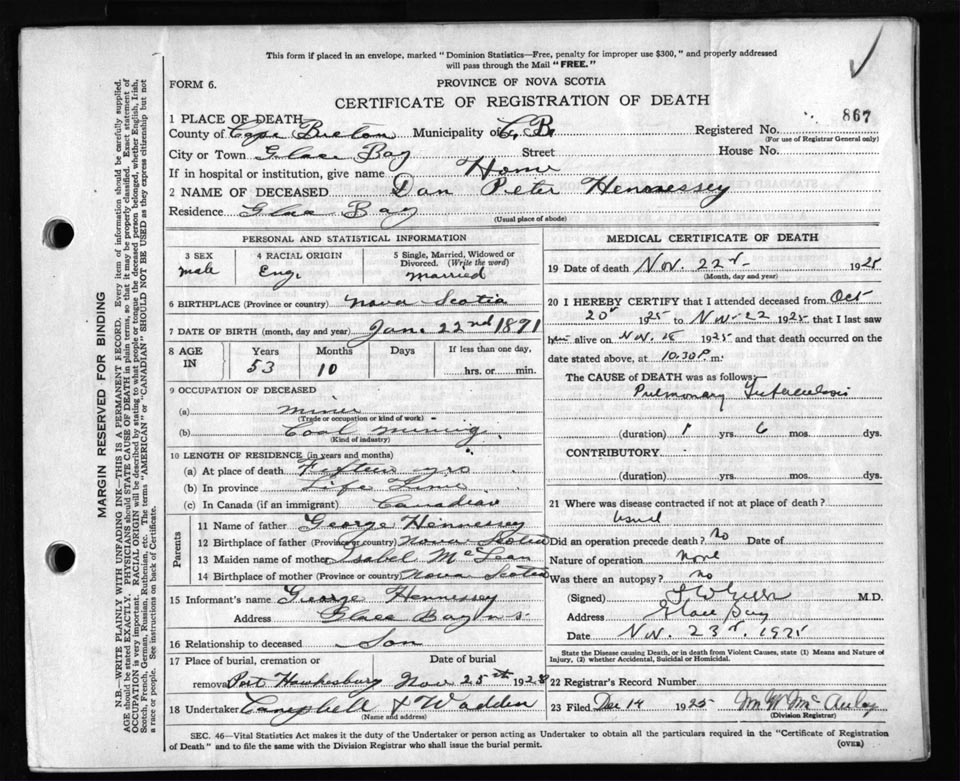 This form if placed in an envelope, marked "Dominion Statistics—Free, penalty for improper use $300," and properly addressed
will pass through the Mail "FREE."
FORM 6.
PROVINCE OF NOVA SCOTIA
CERTIFICATE OF REGISTRATION OF DEATH
867
1 PLACE OF DEATH
County of Cape Breton Municipality of C. B. Registered No.
(For use of Registrar General only)
City or Town Glace Bay Street House No.
If in hospital or institution, give name Home
2 NAME OF DECEASED Dan Peter Hennessey
Residence Glace Bay
(Usual place of abode)
PERSONAL AND STATISTICAL INFORMATION
3 SEX 4 RACIAL ORIGIN 5 Single, Married, Widowed or
Divorced. (Write the word)
male Eng. married
6 BIRTHPLACE (Province or country) Nova Scotia
7 DATE OF BIRTH (month, day and year) Jan. 22nd 1871
8 AGE IN Years Months Days If less than one day,
53 10 hrs. or min.
9 OCCUPATION OF DECEASED
(a) miner
(Trade or occupation or kind of work)
(b) Coal mining
(Kind of industry)
10 LENGTH OF RESIDENCE (in years and months)
(a) At place of death Fifteen yrs
(b) In province Life Time
(c) In Canada (if an immigrant) Canadian
Parents
11 Name of father George Hennessey
12 Birthplace of father (Province or country) Nova Scotia
13 Maiden name of mother Isabel McLean
14 Birthplace of mother (Province or country) Nova Scotia
15 Informant's name George Hennessey
Address Glace Bay N S
16 Relationship to deceased Son
17 Place of burial, cremation or Date of burial
removal Port Hawkesbury Nov 25th 192
18 Undertaker Campbell & Wadden
(Name and address)
MEDICAL CERTIFICATE OF DEATH
19 Date of death Nov. 22 1925
(Month, day and year)
20 I HEREBY CERTIFY that I attended deceased from Oct
20 1925 to Nov-22 1925 that I last saw
him alive on Nov. 18 1925 and that death occurred on the
date stated above, at 10.30 P. m.
The CAUSE OF DEATH was as follows:—
Pulmonary Tuberculosis
(duration) 1 yrs. 6 mos. dys.
CONTRIBUTORY
(duration) yrs. mos. dys.
21 Where was disease contracted if not at place of death?
Usual
Did an operation precede death? No Date of
Nature of operation None
Was there an autopsy? No
(Signed) M.D.
Address Glace Bay
Date Nov. 23 1925
State the Disease causing Death, or in death from Violent Causes, state (1) Means and Nature of
Injury, (2) whether Accidental, Suicidal or Homicidal.
22 Registrar's Record Number
23 Filed Dec 14 1925 M W McAulay
(Division Registrar)
SEC. 46—Vital Statistics Act makes it the duty of the Undertaker or person acting as Undertaker to obtain all the particulars required in the "Certificate of Registration
of Death" and to file the same with the Division Registrar who shall issue the burial permit.
(OVER)
MARGIN RESERVED FOR BINDING
N.B.—WRITE PLAINLY WITH UNFADING INK—THIS IS A PERMANENT RECORD. Every item of information should be carefully supplied.
AGE should be stated EXACTLY. PHYSICIANS should STATE CAUSE OF DEATH in plain terms, so that it may be properly classified. Exact statement of
OCCUPATION is very important. RACIAL ORIGIN will be described by stating to what people or tongue the deceased person belonged, whether English, Irish,
Scotch, French, German, Russian, Ruthenian, etc. The terms "AMERICAN" or "CANADIAN" SHOULD NOT BE USED as they express citizenship but not
a race or people. See instructions on back of Certificate.